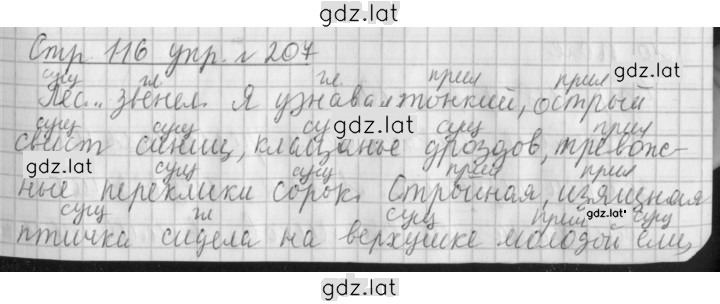 gdz.lat
Стр. 116 упр. № 207
gdz.lat
сущ гл гл прил прил
Лес.. звенел. Я узнавал тонкий, острый
gdz.lat
сущ сущ су сущ прил
свист синиц, клацанье дроздов, тревож-
gdz.lat
gdz.lat
сущ сущ прил прил
ные переклики сорок. Стройная, изящная
gdz.lat
сущ гл сущ прил сущ
птичка сидела на верхушке молодой ели,
gdz.lat